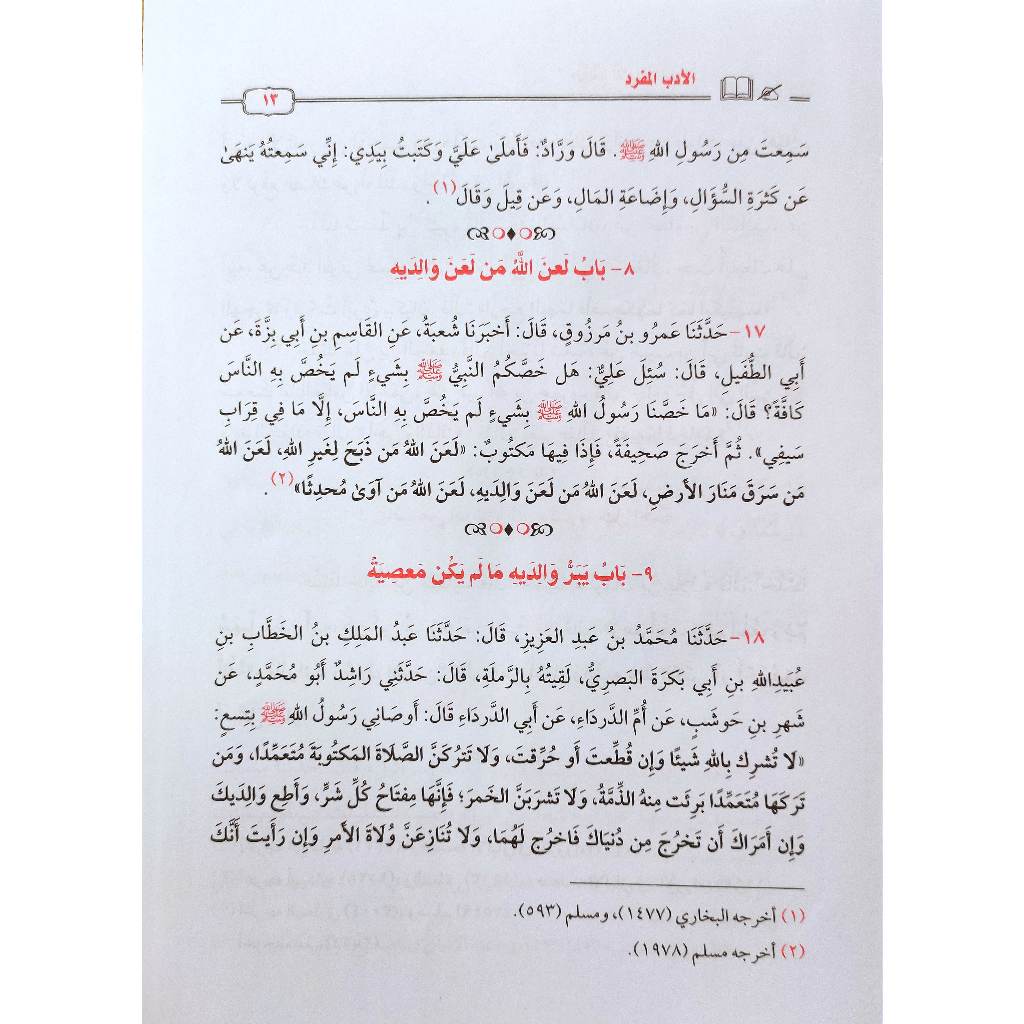 الأدب المفرد
١٣
سَمِعتَ مِن رَسُولِ اللهِ ﷺ. قَالَ وَرَّادٌ: فَأَملَىٰ عَلَيَّ وَكَتَبتُ بِيَدِي: إِنِّي سَمِعتُهُ يَنهَىٰ
عَن كَثرَةِ السُّؤَالِ، وَإِضَاعَةِ المَالِ، وَعَن قِيلَ وَقَالَ(١).
٨- بَابُ لَعنَ اللَّهُ مَن لَعَنَ وَالِدَيهِ
١٧- حَدَّثَنَا عَمرُو بنُ مَرزُوقٍ، قَالَ: أَخبَرَنَا شُعبَةُ، عَنِ القَاسِمِ بنِ أَبِي بِزَّةَ، عَن
أَبِي الطُّفَيلِ، قَالَ: سُئِلَ عَلِيٌّ: هَل خَصَّكُمُ النَّبِيُّ ﷺ بِشَيءٍ لَم يَخُصَّ بِهِ النَّاسَ
كَافَّةً؟ قَالَ: «مَا خَصَّنَا رَسُولُ اللهِ ﷺ بِشَيءٍ لَم يَخُصَّ بِهِ النَّاسَ، إِلَّا مَا فِي قِرَابِ
سَيفِي». ثُمَّ أَخرَجَ صَحِيفَةً، فَإِذَا فِيهَا مَكتُوبٌ: «لَعَنَ اللهُ مَن ذَبَحَ لِغَيرِ اللهِ، لَعَنَ اللهُ
مَن سَرَقَ مَنَارَ الأَرضِ، لَعَنَ اللهُ مَن لَعَنَ وَالِدَيهِ، لَعَنَ اللهُ مَن آوَىٰ مُحدِثًا»(٢).
٩- بَابُ يَبَرُّ وَالِدَيهِ مَا لَم يَكُن مَعصِيَةً
١٨- حَدَّثَنَا مُحَمَّدُ بنُ عَبدِ العَزِيزِ، قَالَ: حَدَّثَنَا عَبدُ المَلِكِ بنُ الخَطَّابِ بنِ
عُبَيدِاللهِ بنِ أَبِي بَكرَةَ البَصرِيُّ، لَقِيتُهُ بِالرَّملَةِ، قَالَ: حَدَّثَنِي رَاشِدٌ أَبُو مُحَمَّدٍ، عَن
شَهرِ بنِ حَوشَبٍ، عَن أُمِّ الدَّردَاءِ، عَن أَبِي الدَّردَاءِ قَالَ: أَوصَانِي رَسُولُ اللهِ ﷺ بِتِسعٍ:
«لَا تُشرِك بِاللهِ شَيئًا وَإِن قُطِّعتَ أَو حُرِّقتَ، وَلَا تَترُكَنَّ الصَّلَاةَ المَكتُوبَةَ مُتَعَمِّدًا، وَمَن
تَرَكَهَا مُتَعَمِّدًا بَرِئَت مِنهُ الذِّمَّةُ، وَلَا تَشرَبَنَّ الخَمرَ؛ فَإِنَّهَا مِفتَاحُ كُلِّ شَرٍّ، وَأَطِع وَالِدَيكَ
وَإِن أَمَرَاكَ أَن تَخرُجَ مِن دُنيَاكَ فَاخرُج لَهُمَا، وَلَا تُنَازِعَنَّ وُلَاةَ الأَمرِ وَإِن رَأَيتَ أَنَّكَ
(١) أخرجه البخاري (١٤٧٧)، ومسلم (٥٩٣).
(٢) أخرجه مسلم (١٩٧٨).